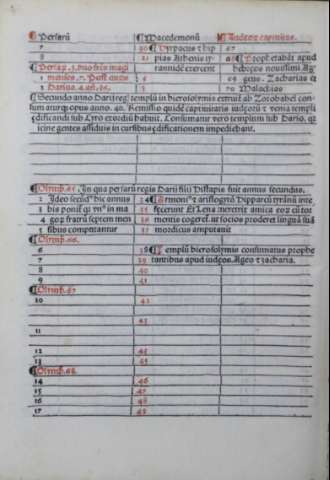 ¶Persarū ¶Macedemonū ¶Iudeoꝝ captiuitas.
7 20 ¶Hyparcus ⁊ hip 67
21 pias Athenis ty 68 ¶Prophetabāt apud
¶Persaꝝ.3.duo fr̄es magi rannidē exercent hebreos nouissimi Ag
1 menses.7. Post quos 69 geus. Zacharias et
2 Darius.4.añ.36. 70 Malachias
¶Secundo anno Darii templū in hierosolymis extruit̄ ab Zorobabel
annis .40. Remissio quidē captiuitatis iudeoꝝ ⁊ venia templi
edificandi sub Cyro exordiū habuit. Consumatur vero templum sub Dario. qꝛ
icine gentes assiduis incursibus edificationem impediebant.
¶Olimp.65. In qua persarū regis Darii filii Histaspis fuit annus secundus.
2 Ideo secūdꝰ hic annus 34 ¶Armoniꝰ ⁊ aristogitō Hipparcū tirānū inte
3 bis ponit̄ qꝛ vnꝰ in ma 35 fecerunt Et Lena meretrix amica eoꝝ cū tor
4 goꝝ fratrū septem men 36 mentis cogeret̄ ut socios proderet linguā suā
5 sibus computatur 37 mordicus amputauit
¶Olimp.66.
6 38 ¶Templū hierosolymis consumatur prophe
7 39 tantibus apud iudeos Ageo ⁊ zacharia.
8 40
9 41
¶Olimp.67
10 42
43
11
12 45
13 45
¶Olimp.68.
14 46
15 47
16 48
17